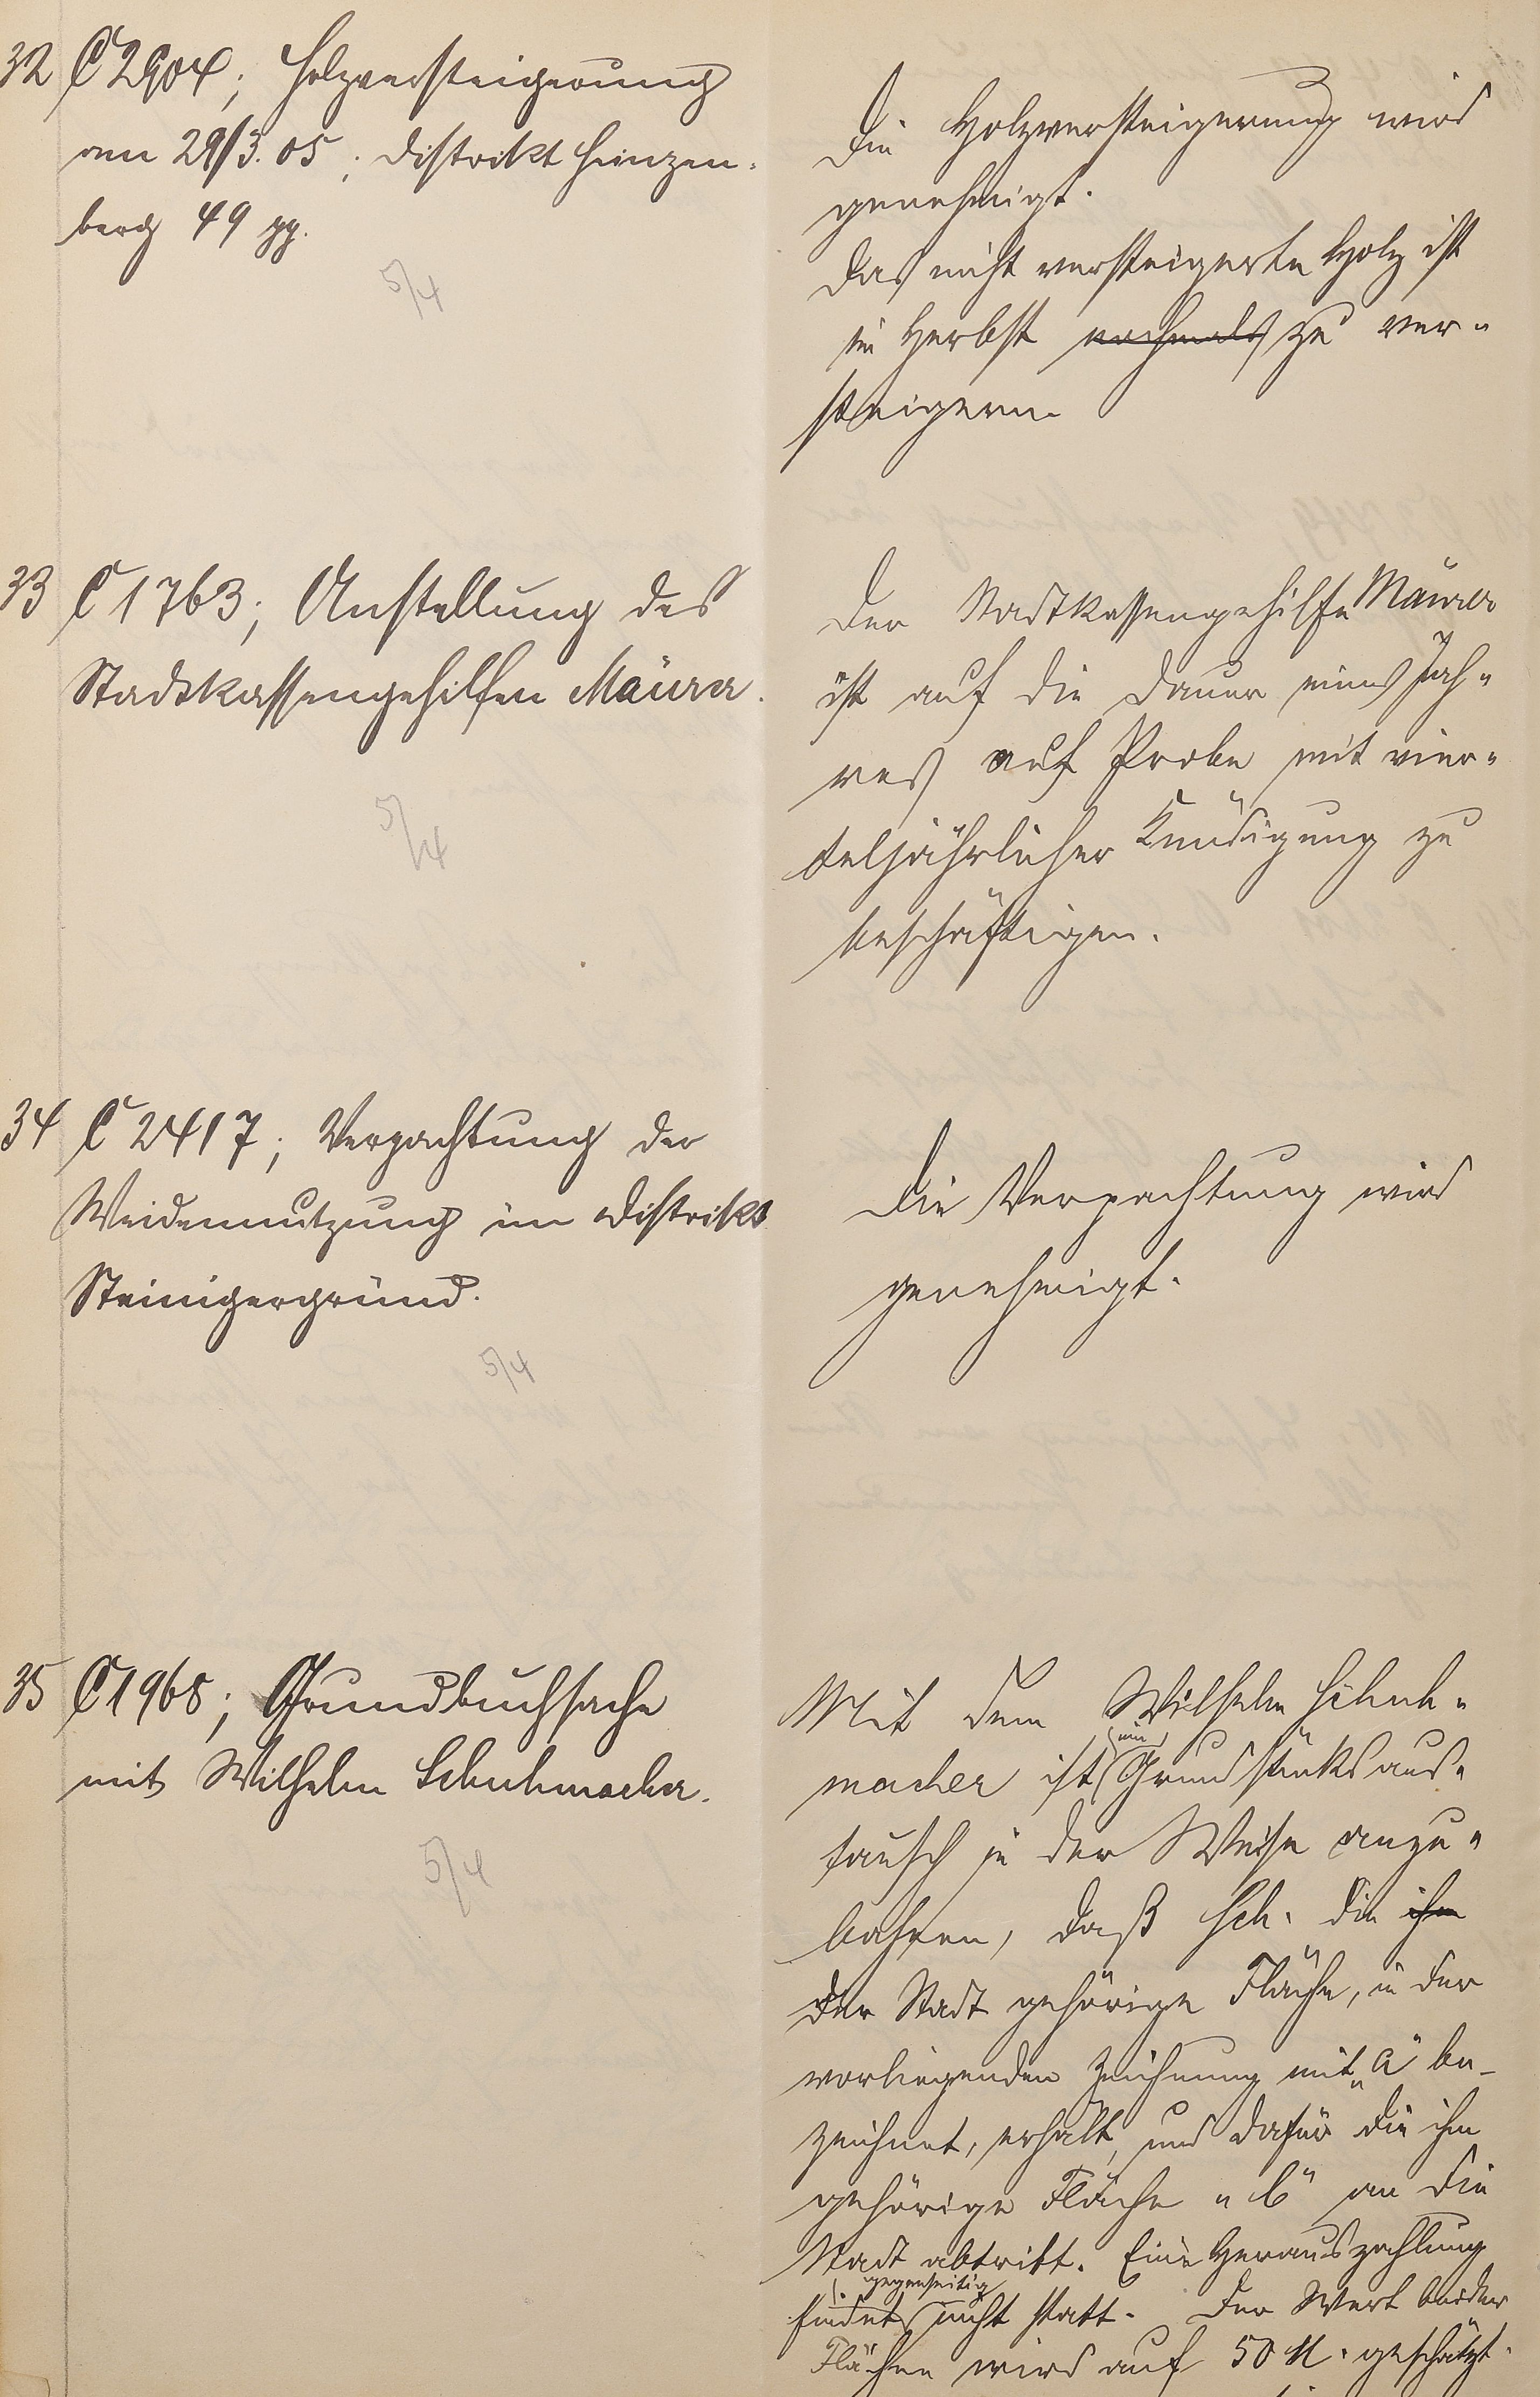 32 C 2904; Holzversteigerung
am 29/3. 05; Distrikt Hinzen-
berg 49 pp.
5/4
Die Holzversteigerung wird
genehmigt.
Das nicht versteigerte Holz ist
im Herbst nochmals zu ver-
steigern.
33 C 1763; Anstellung des
Stadtkassengehilfen Mäurer.
5/4
Der Stadtkassengehilfe Mäurer
ist auf die Dauer eines Jah-
res auf Probe mit vier-
teljährlicher Kündigung zu
beschäftigen.
34 C 2417; Verpachtung der
Weidennutzung im Distrikt
Steinigergründ.
5/4
Die Verpachtung wird
genehmigt.
35 C 1968; Grundbuchsache
mit Wilhelm Schuhmacher.
5/4
Mit dem Wilhelm Schuh-
macher ist ein Grundstücksaus-
tausch in der Weise anzu-
bahnen, daß Sch. die ihm
der Stadt gehörige Fläche, in der
vorliegenden Zeichnung mit „a“ be-
zeichnet, erhält, und dafür die ihm
gehörige Fläche „b“ an die
Stadt abtritt. Eine Herauszahlung
findet gegenseitig nicht statt. Der Wert beider
Flächen wird auf 50 M. geschätzt.